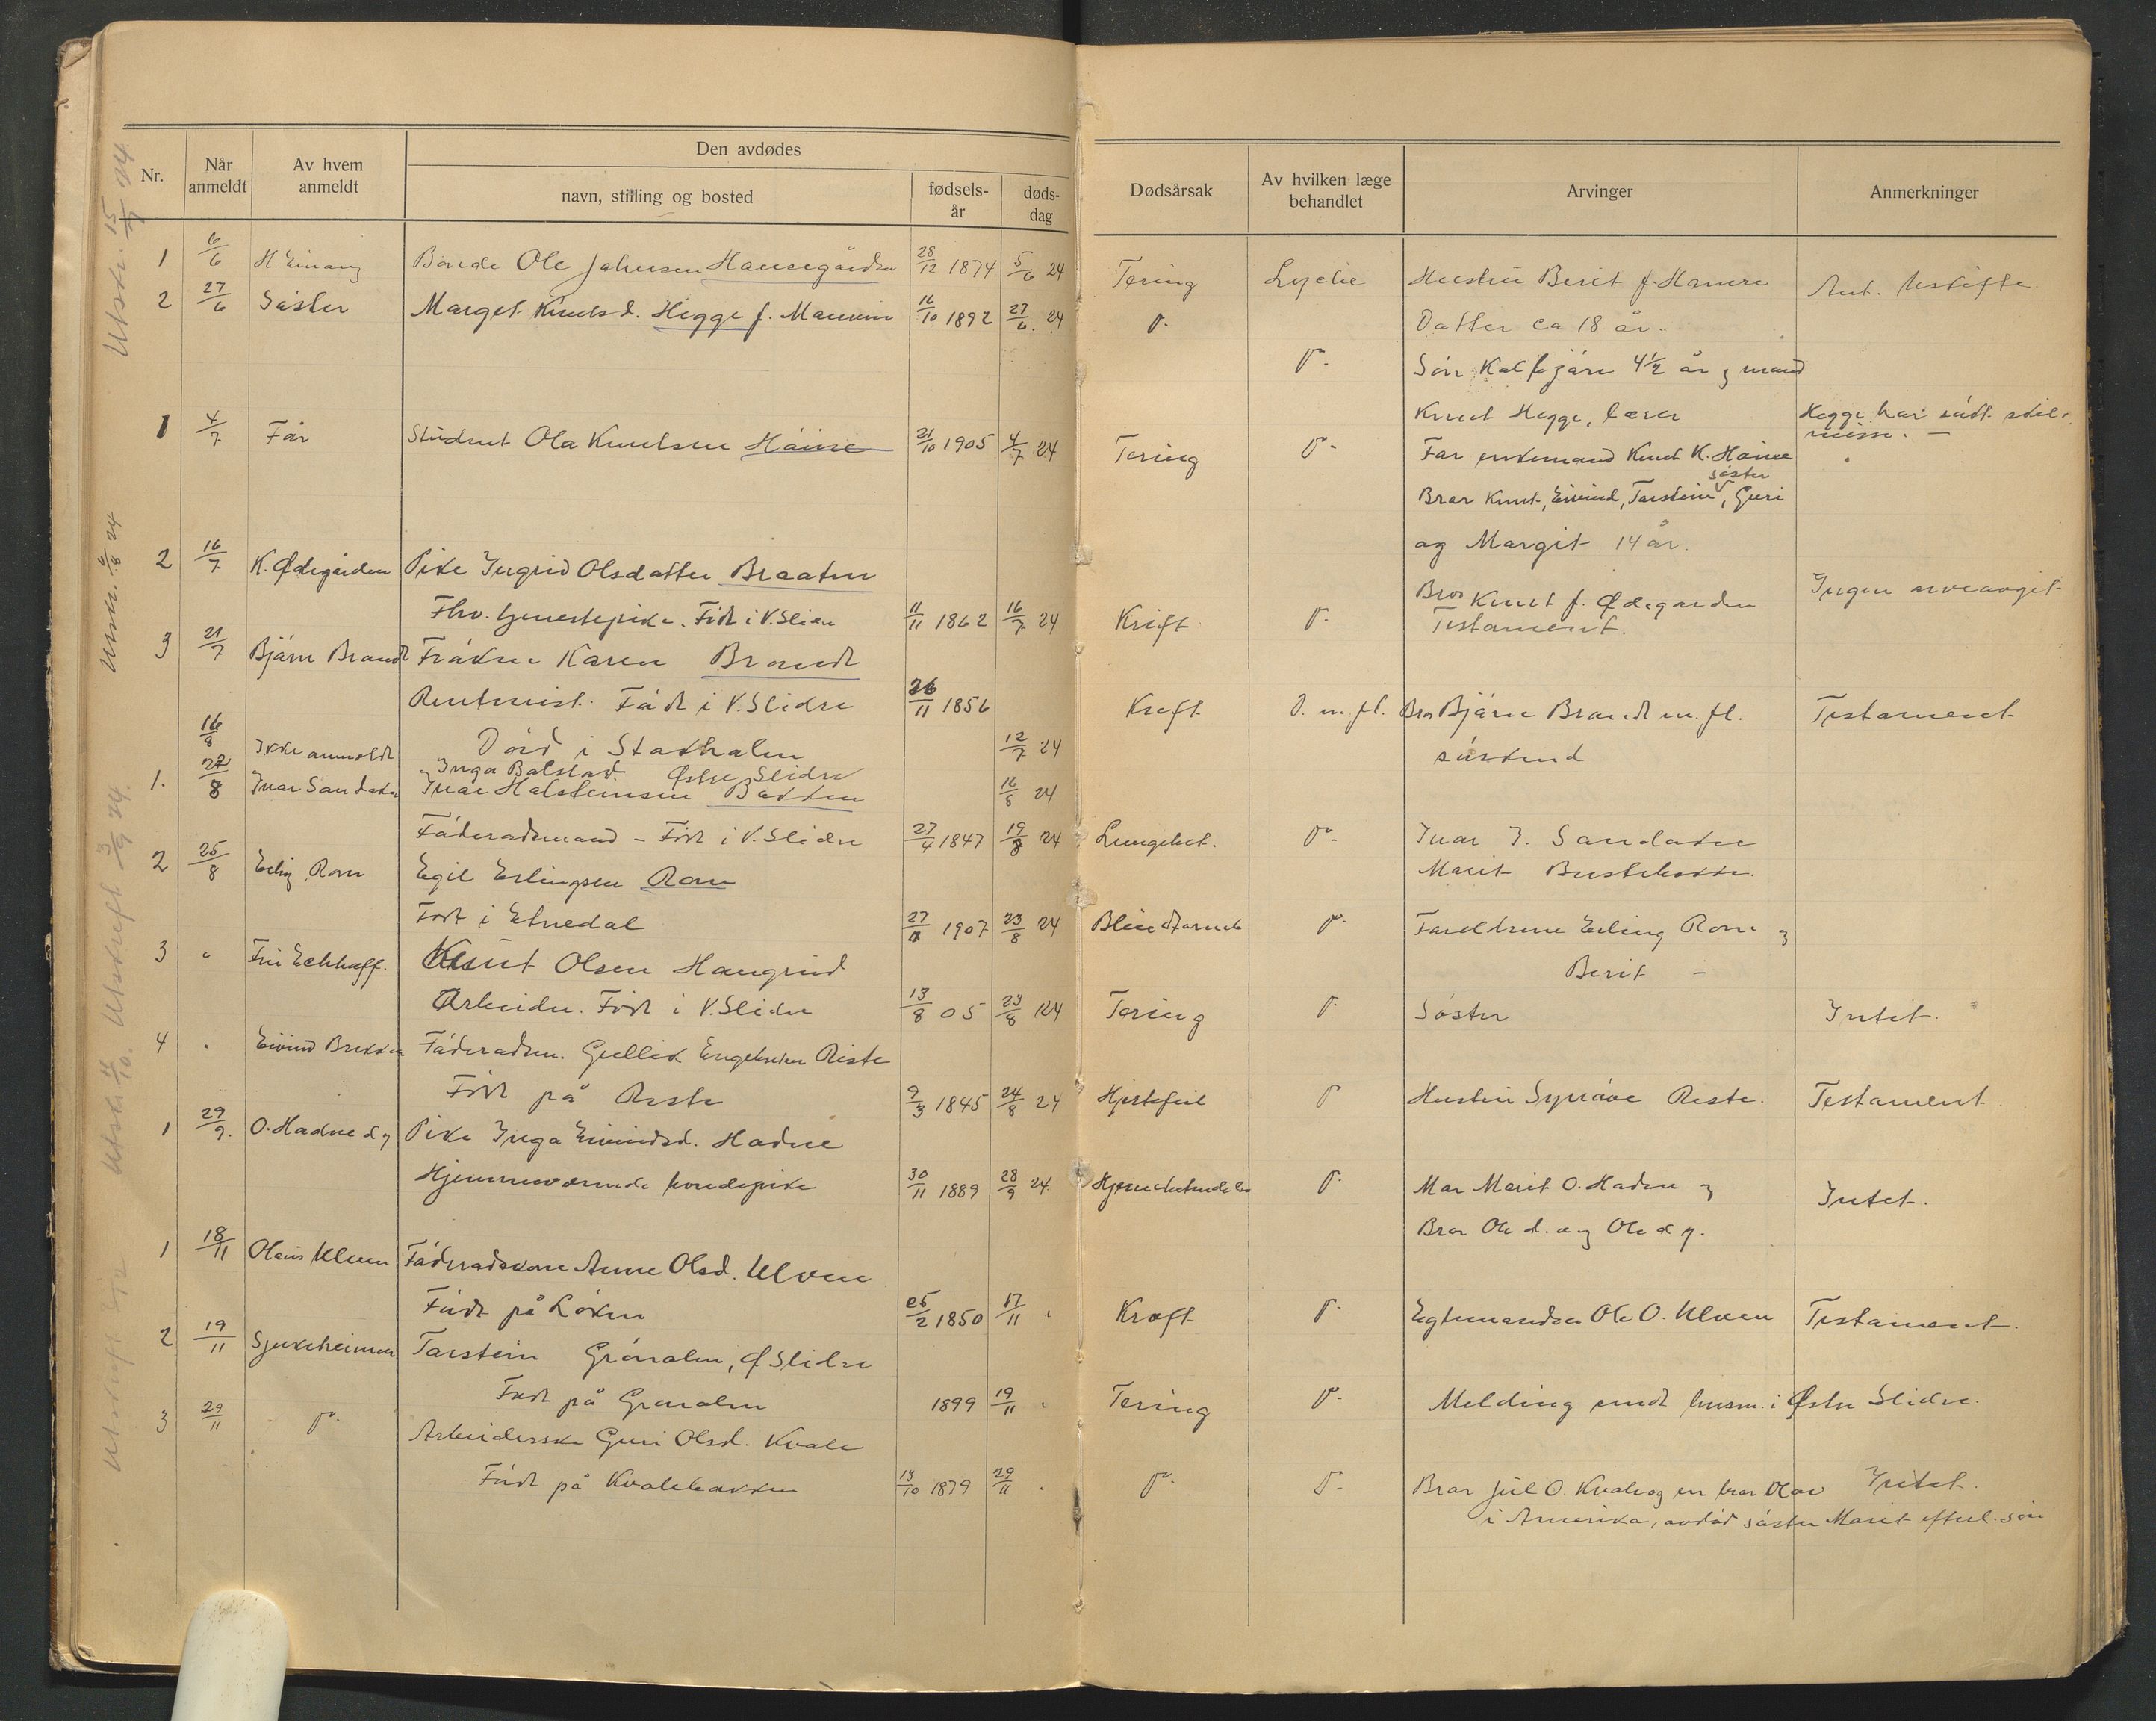 Nr.
Når anmeldt
Av hvem anmeldt
Den avdødes
navn, stilling og bosted
fødsels-år
døds-dag
Dødsårsak
Av hvilken læge behandlet
Arvinger
Anmerkninger
Utskr. 15/7 24.
1 6/6 H. Einang Bonde Ole Johnsen Hausegården 28/12 1874 5/6 24 Tering Hustru Berit f.
2 27/6 Søster Marget Knutsd. Hegge f. 16/10 1892 27/6 24 Datter ca 18 år.
Søn 4½ år og mand
Knut Hegge, lærer Hegge har
1 4/7 Far Student Ola Knutsen Høine 21/10 1905 4/7 24 Tering Far enkemand Knut K. Høine
søster
Bror Knut, Eivind, Torstein, Guri
og Margit 14 år.
Utskr. 24
2 16/7 K. Ødegården Pike Ingrid Olsdatter Braaten
Fhv. tjenestepike. Født i V. Slidre 11/11 1862 16/7 24 Kræft Bror Knut f. Ødegården Ingen
Testament.
3 21/7 Bjørn Brandt Frøken Karen Brandt
Rentenist. Født i V. Slidre 26/11 1856 Kreft D. m. fl. Bror Bjørn Brandt m. fl. Testament
16/8 Ikke anmeldt Død i Stavholm 12/7 24 søskend
Inga Bolstad Østre Slidre
1. 22/8 Ivar Sandaker Ivar Halsteinsen Bakken 16/8 24
Føderadsmand – Født i V. Slidre 27/4 1847 19/8 24 Lungebet. Ivar I. Sandaker
Marit
Utskrift 3/9 24.
2 25/8 Erling Rom Egil Erlingsen Rom
Født i Etnedal 1907 23/8 24 Foreldrene Erling Rom og
Berit –
3 " Knut Olsen Haugrud
Arbeider. Født i V. Slidre 13/8 05 23/8 24 Tering Søster Intet.
4 " Eivind Brekken Føderadsm. Gullik Riste
Født på Riste 9/3 1845 24/8 24 Hjertefeil Hustru Synnøve Riste. Testament.
Utskr. 4/10.
1 29/9. O. Hadne d.y. Pike Inga Eivindsd. Hadne
Hjemmeværende bondepike 30/11 1889 28/9 24. Mor Marit O. Hadne og Intet.
Bror Ole d.e. og Ole d.y.
1 18/11 Olaus Ulven Føderadskone Anne Olsd. Ulven
Født på Løken 25/2 1850 17/11 " Kreft Egtemanden Ole O. Ulven Testament.
2 19/11 Sjukeheimen Torstein Grønolen, Ø. Slidre
Født på Grønolen 1899 19/11 " Tering Melding sendt lensm. i Østre Slidre.
Utskrift
3 29/11 Arbeiderske Guri Olsd. Kvale
Født på Kvalebakken 13/10 1879 29/11 " Bror Jul O. Kvale og en bror Olav Intet.
i Amerika, avdød søster Marit efterl. søn